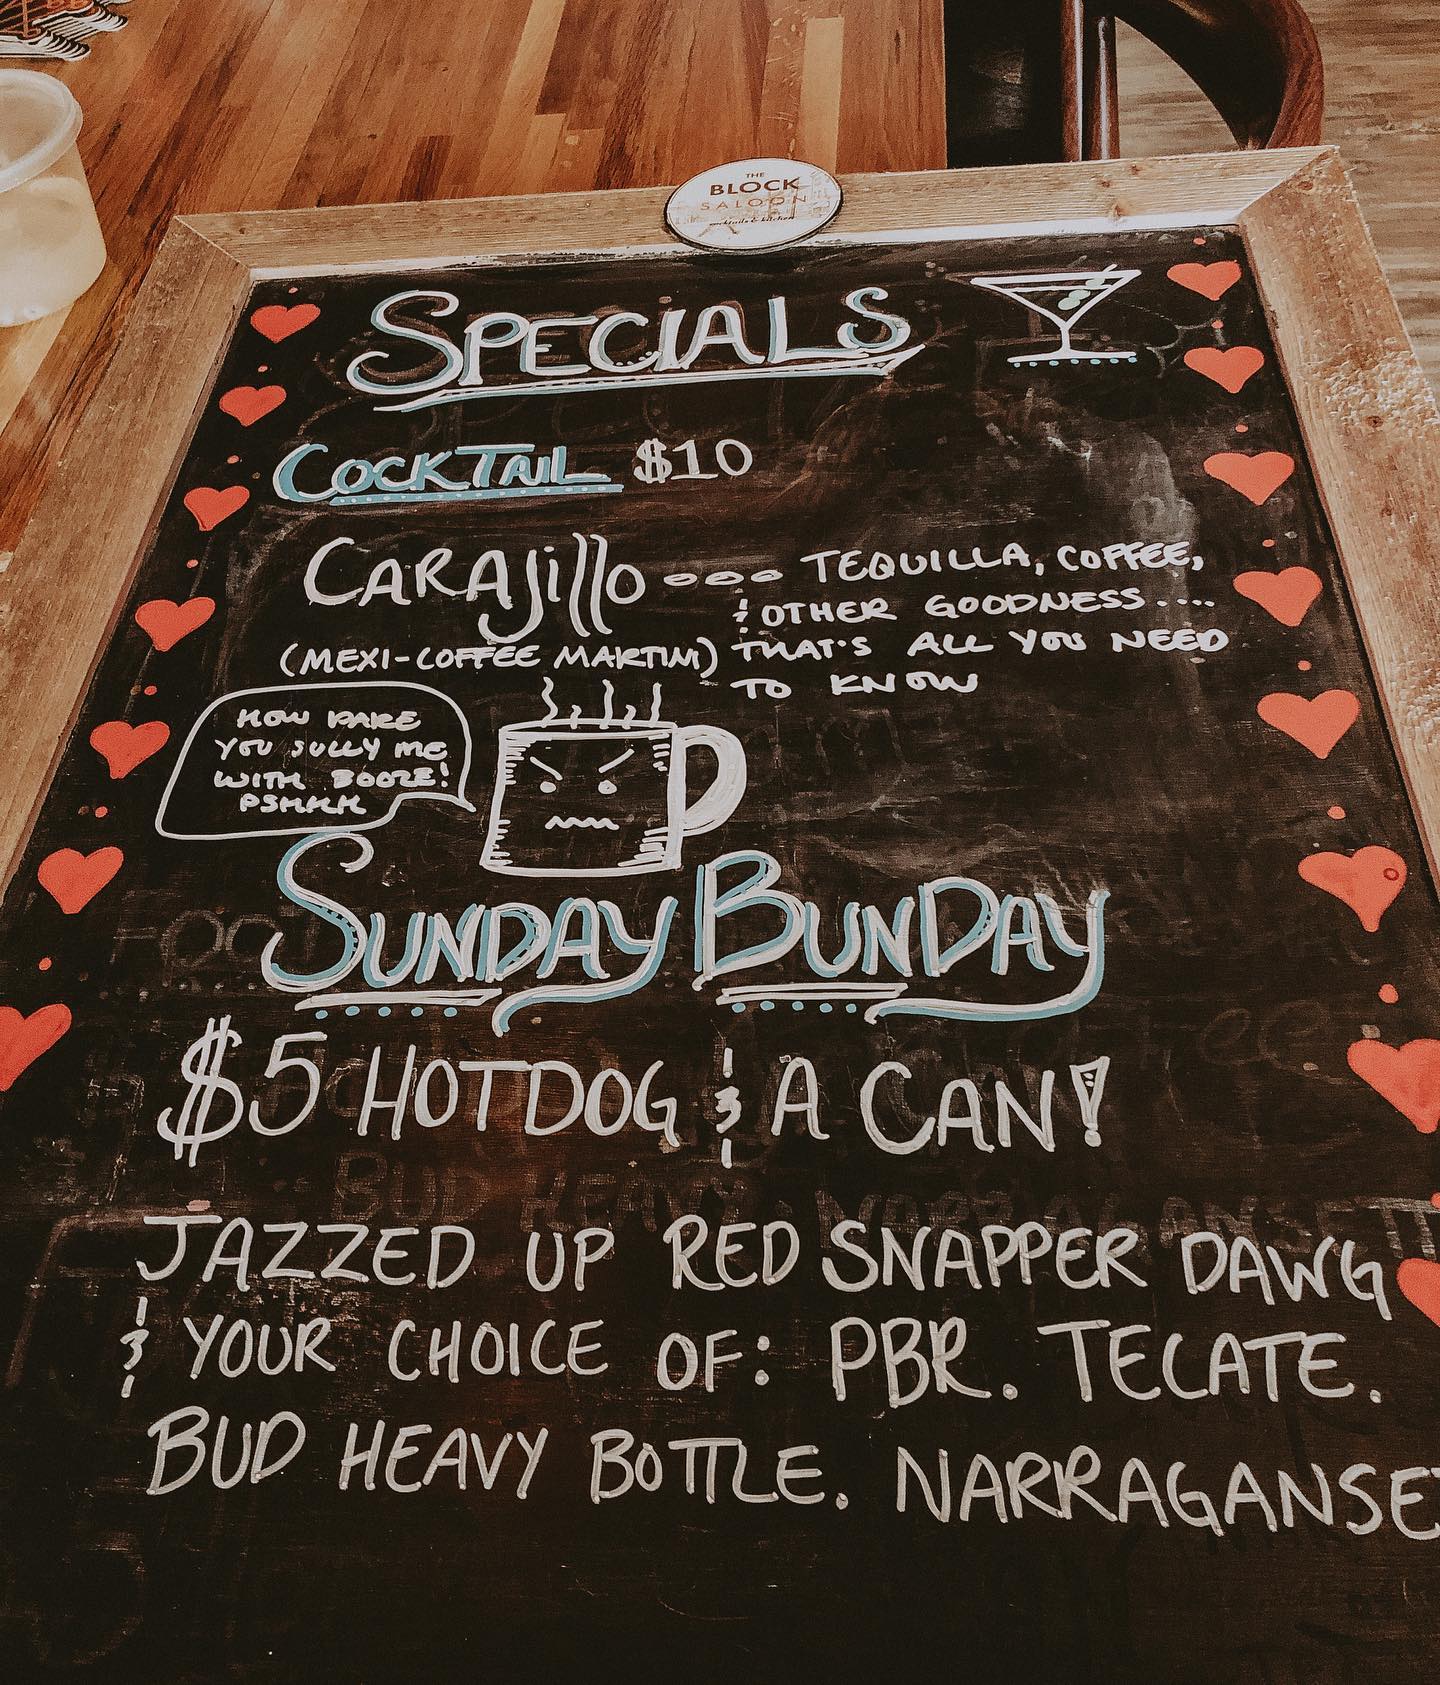 THE
BLOCK
SALOON
cocktails & kitchen
SPECIALS
COCKTAIL $10
CARAJillO --- TEQUILLA, COFFEE,
& OTHER GOODNESS....
(MEXI-COFFEE MARTINI) THAT'S ALL YOU NEED
TO KNOW
HOW DARE
YOU SULLY ME
WITH BOOZE!
PSHHHH
SUNDAY BUNDAY
$5 HOTDOG & A CAN!
JAZZED UP RED SNAPPER DAWG
& YOUR CHOICE OF: PBR. TECATE.
BUD HEAVY BOTTLE. NARRAGANSET